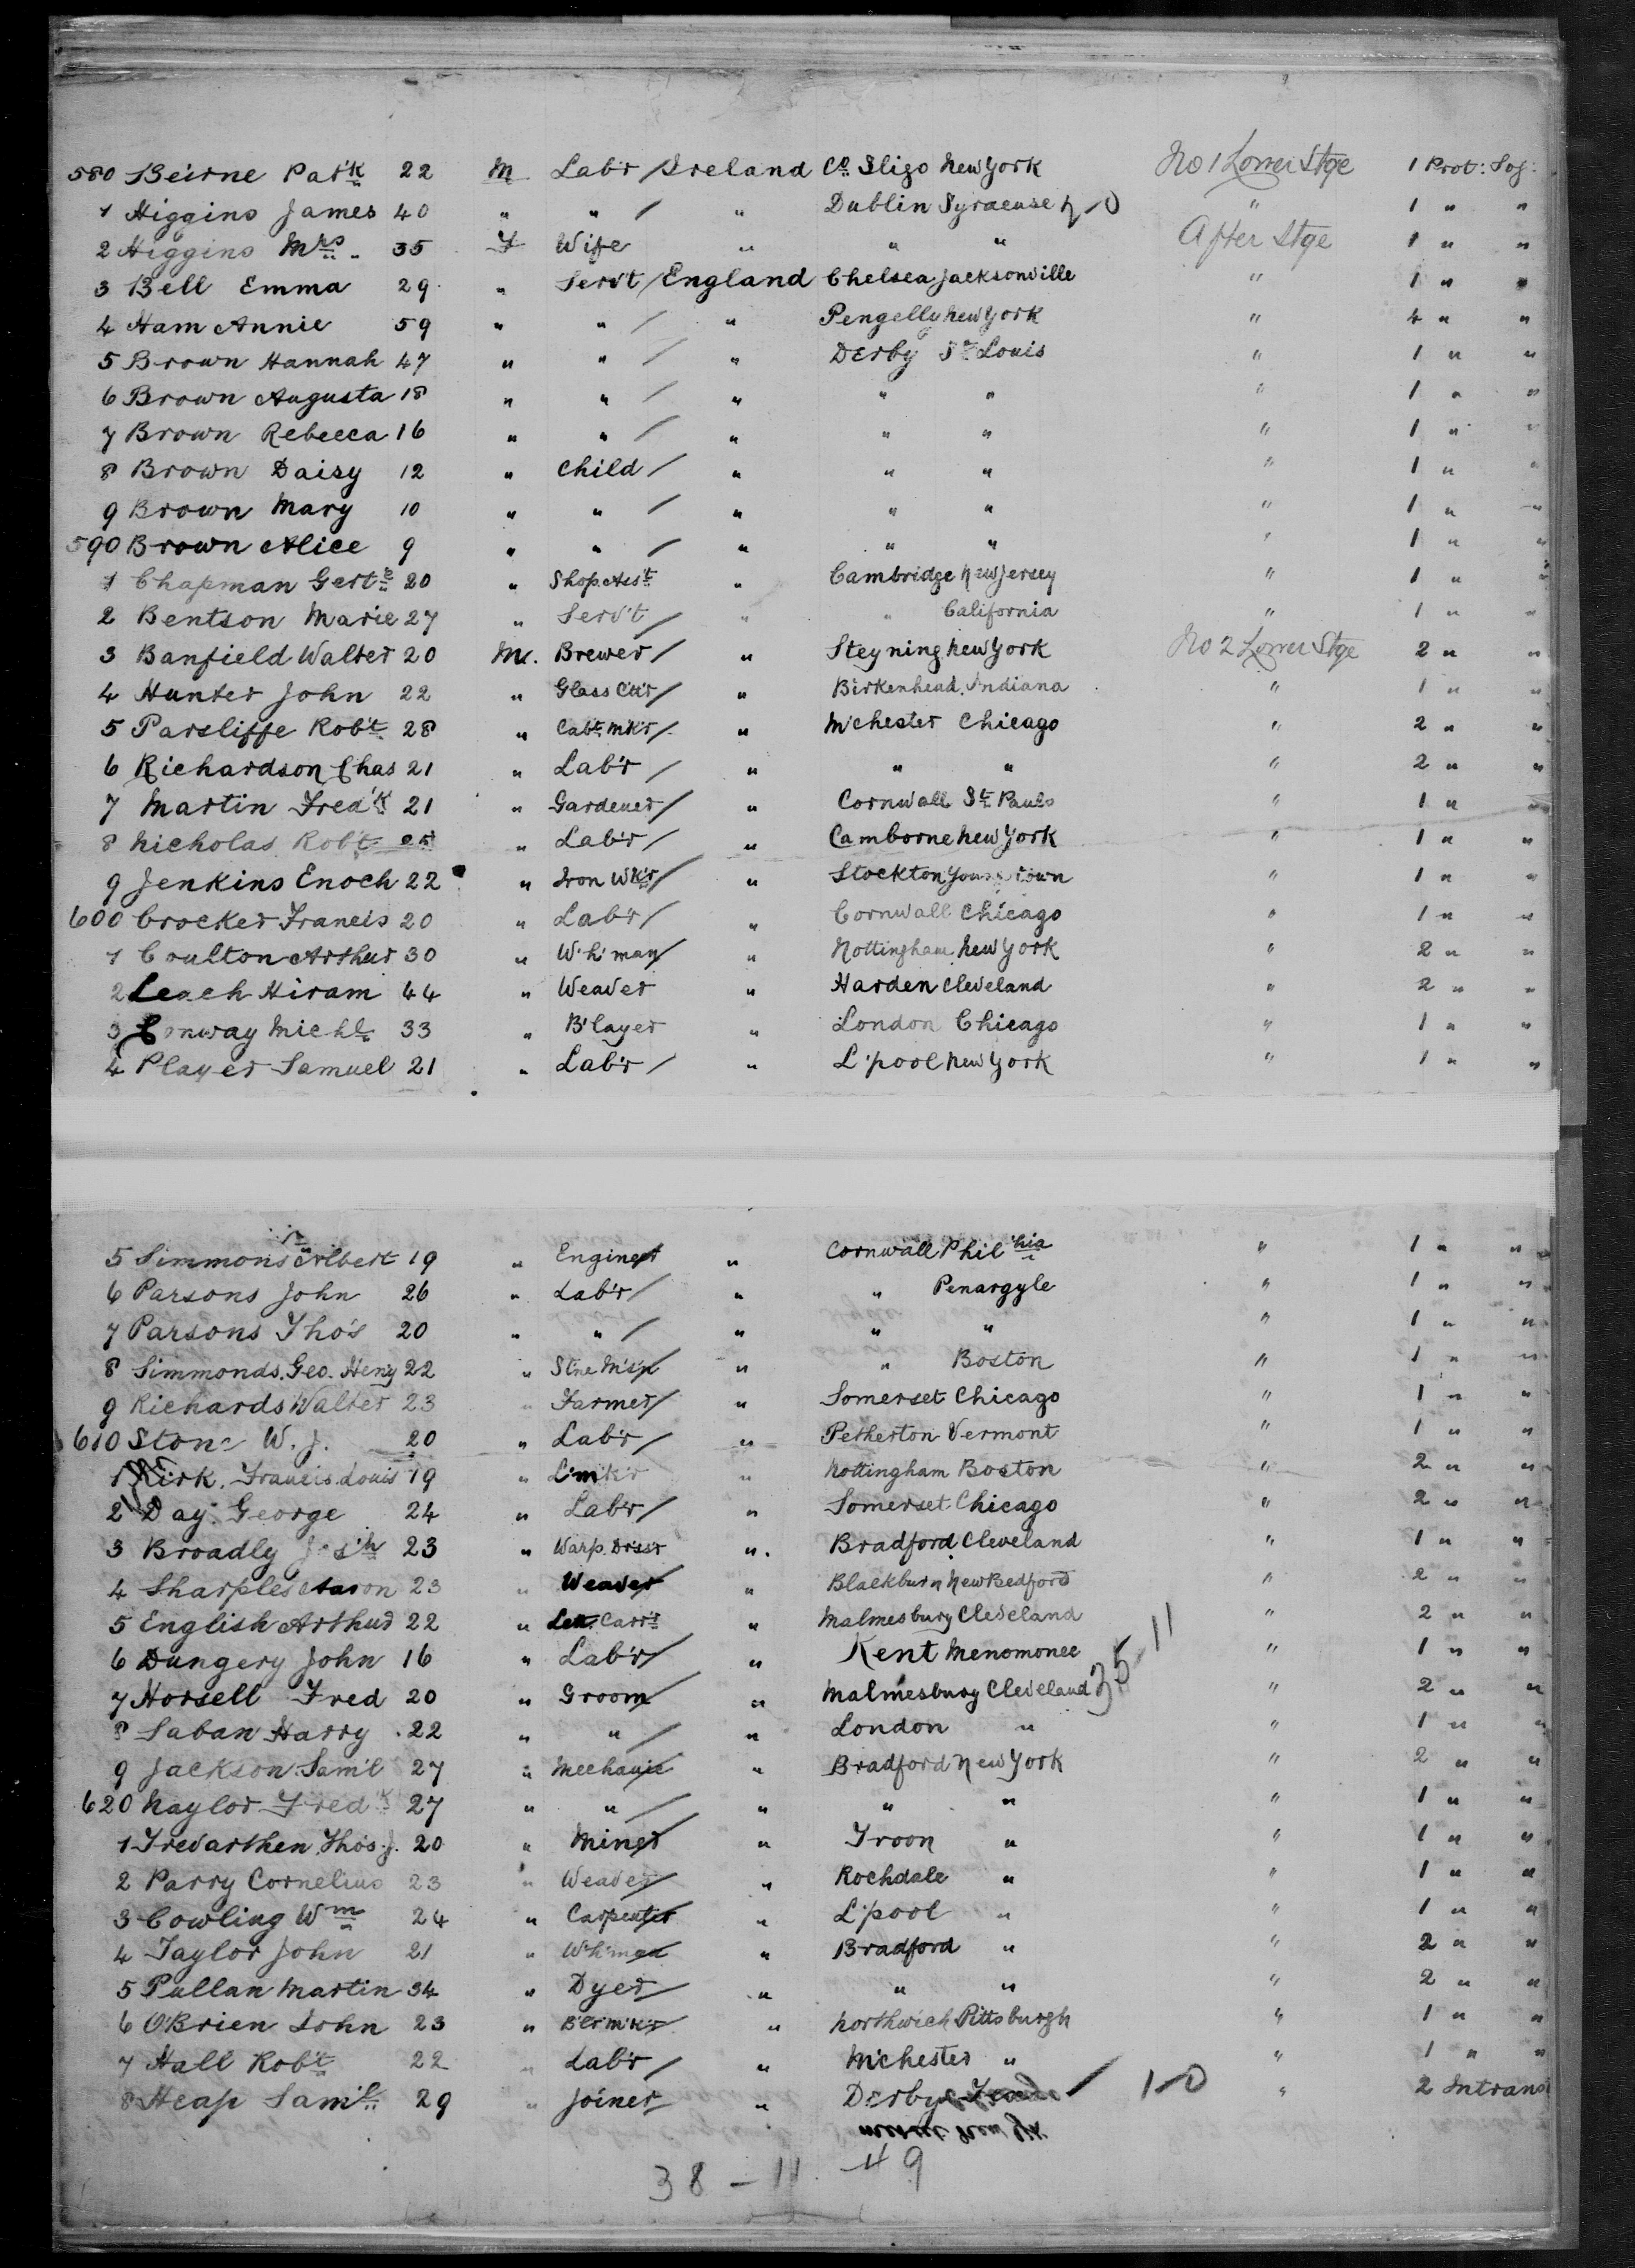 580 Beirne Pat'k 22 M Lab'r / Ireland Co. Sligo New York No 1 Lower Stge 1 Prot: Soj:
1 Higgins James 40 " " / " Dublin Syracuse " 1 " "
2 Higgins Mrs. 35 F Wife " " " After Stge 1 " "
3 Bell Emma 29 " Serv't / England Chelsea Jacksonville " 1 " "
4 Ham Annie 59 " " / " Pengelly New York " 4 " "
5 Brown Hannah 47 " " / " Derby St Louis " 1 " "
6 Brown Augusta 18 " " / " " " " 1 " "
7 Brown Rebecca 16 " " / " " " " 1 " "
8 Brown Daisy 12 " Child / " " " " 1 " "
9 Brown Mary 10 " " / " " " " 1 " "
590 Brown Alice 9 " " / " " " " 1 " "
1 Chapman Gert'e 20 " Shop Ass't " Cambridge New Jersey " 1 " "
2 Bentson Marie 27 " Serv't / " " California " 1 " "
3 Banfield Walter 20 M. Brewer / " Steyning New York No 2 Lower Stge 2 " "
4 Hunter John 22 " Glass Ctt'r / " Birkenhead Indiana " 1 " "
5 Parsliffe Rob't 28 " Cabt. Mk'r / " M'chester Chicago " 2 " "
6 Richardson Chas 21 " Lab'r / " " " " 2 " "
7 Martin Fred'k 21 " Gardener / " Cornwall St. Pauls " 1 " "
8 Nicholas Rob't 25 " Lab'r / " Camborne New York " 1 " "
9 Jenkins Enoch 22 " Iron Wk'r / " Stockton Youngstown " 1 " "
600 Crocker Francis 20 " Lab'r / " Cornwall Chicago " 1 " "
1 Coulton Arthur 30 " W'h'man / " Nottingham New York " 2 " "
2 Leach Hiram 44 " Weaver " Harden Cleveland " 2 " "
3 Conway Michl. 33 " B'layer " London Chicago " 1 " "
4 Player Samuel 21 " Lab'r / " L'pool New York " 1 " "
5 Simmons Albert 19 " Engineer " Cornwall Phil'hia " 1 " "
6 Parsons John 26 " Lab'r / " " Penargyle " 1 " "
7 Parsons Tho's 20 " " / " " " " 1 " "
8 Simmonds Geo. Heny 22 " Stne Ms'n " " Boston " 1 " "
9 Richards Walter 23 " Farmer / " Somerset Chicago " 1 " "
610 Stone W. J. 20 " Lab'r / " Petherton Vermont " 1 " "
1 Kirk. Francis Louis 19 " L'mk'r " Nottingham Boston " 2 " "
2 Day. George 24 " Lab'r / " Somerset Chicago " 2 " "
3 Broadly Jos'h 23 " Warp. Drss'r " Bradford Cleveland " 1 " "
4 Sharples Aaron 23 " Weaver " Blackburn New Bedford " 2 " "
5 English Arthur 22 " Carr'r " Malmesbury Cleveland " 2 " "
6 Dungery John 16 " Lab'r / " Kent Menomonee " 1 " "
7 Horsell Fred 20 " Groom " Malmesbury Cleveland 35 11 " 2 " "
8 Saban Harry 22 " " / " London " " 1 " "
9 Jackson Sam'l 27 " Mechanic " Bradford New York " 2 " "
620 Naylor Fred'k 27 " " / " " " " 1 " "
1 Trevarthen Tho's J. 20 " Miner " Troon " " 1 " "
2 Parry Cornelius 23 " Weaver " Rochdale " " 1 " "
3 Cowling Wm 24 " Carpenter " L'pool " " 1 " "
4 Taylor John 21 " W'h'man " Bradford " " 2 " "
5 Pullan Martin 34 " Dyer / " " " " 2 " "
6 O'Brien John 23 " B'lrmk'r " Northwich Pittsburgh " 1 " "
7 Hall Rob't 22 " Lab'r / " M'chester " " 1 " "
8 Heap Sam'l. 29 " Joiner " Derby / 1-0 " 2 Intrans
New Yk
38 - 11 49